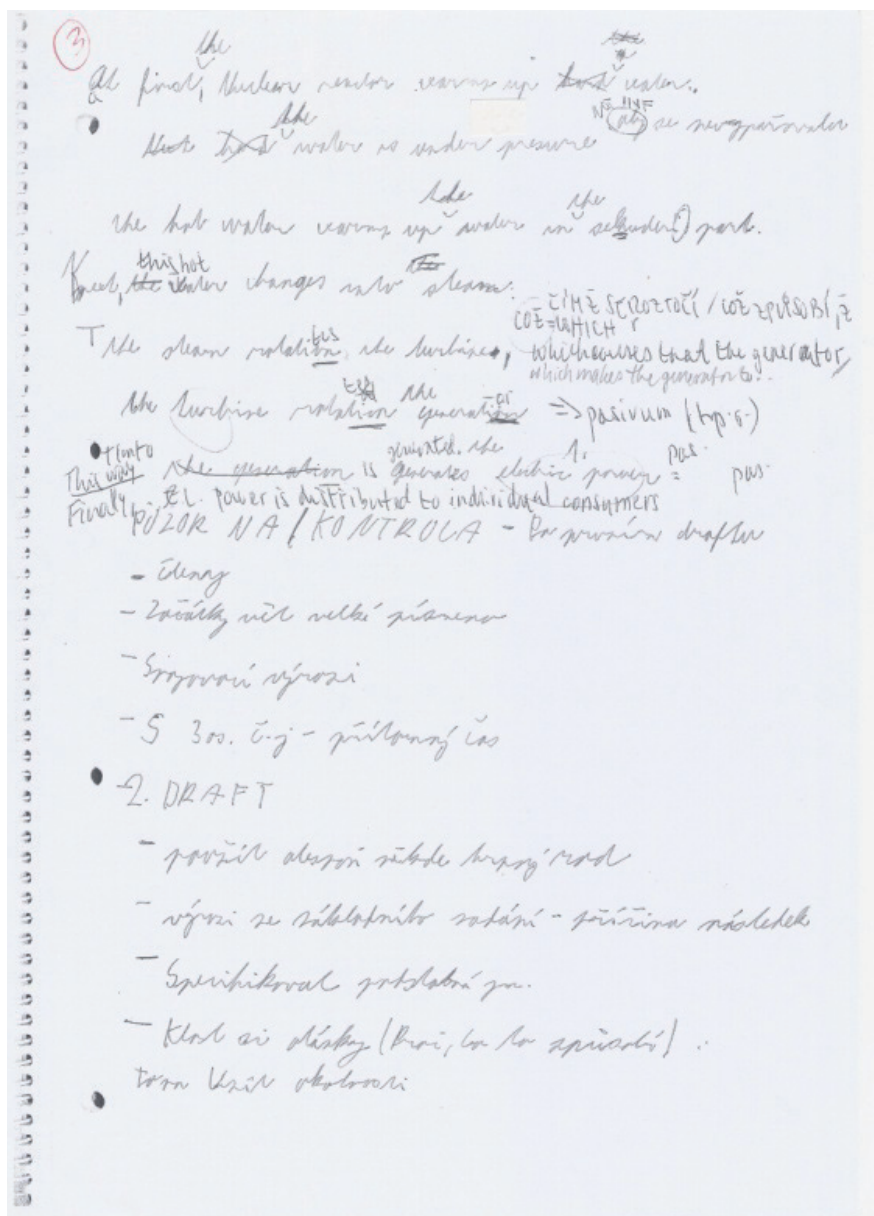 3
the the
At first, Nuclear reactor warms up hard a water.
the NE INF
Next hard water is under presure aby se nevypařovala
the the
the hot water warms up water in sekunder part.
this hot the
Next, the water changes into steam.
– ČÍMŽ SE ROZTOČÍ / COŽ ZPŮSOBÍ, Ž
COŽ = WHICH
The steam rotation tes the turbines, which causes that the generator,
which makes the generator to..
the or
the turbine rotation generation => pasivum (trp. r.)
tímto generated. the 1. pas.
This way the generation is generates electric power = pas.
Finally, EL. power is distributed to individual consumers
POZOR NA / KONTROLA – Po prvním draftu
- členy
- Začátky vět velké písmeno
- Spojovací výrazi
- S 3 os. č. j – přítomný čas
- 2. DRAFT
- použít alespoň někde trpný rod
- výrazi ze základního zadání – příčina následek
- Specifikovat podstatná jm.
- Klást si otázky (Proč, co to způsobí)
okolnosti